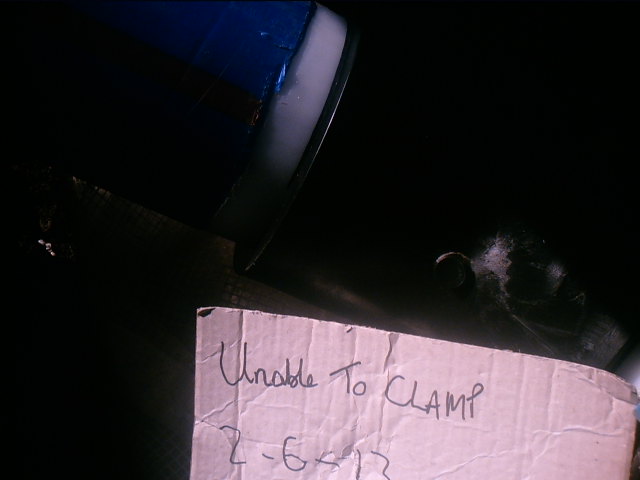 Unable To CLAMP
2-6-12